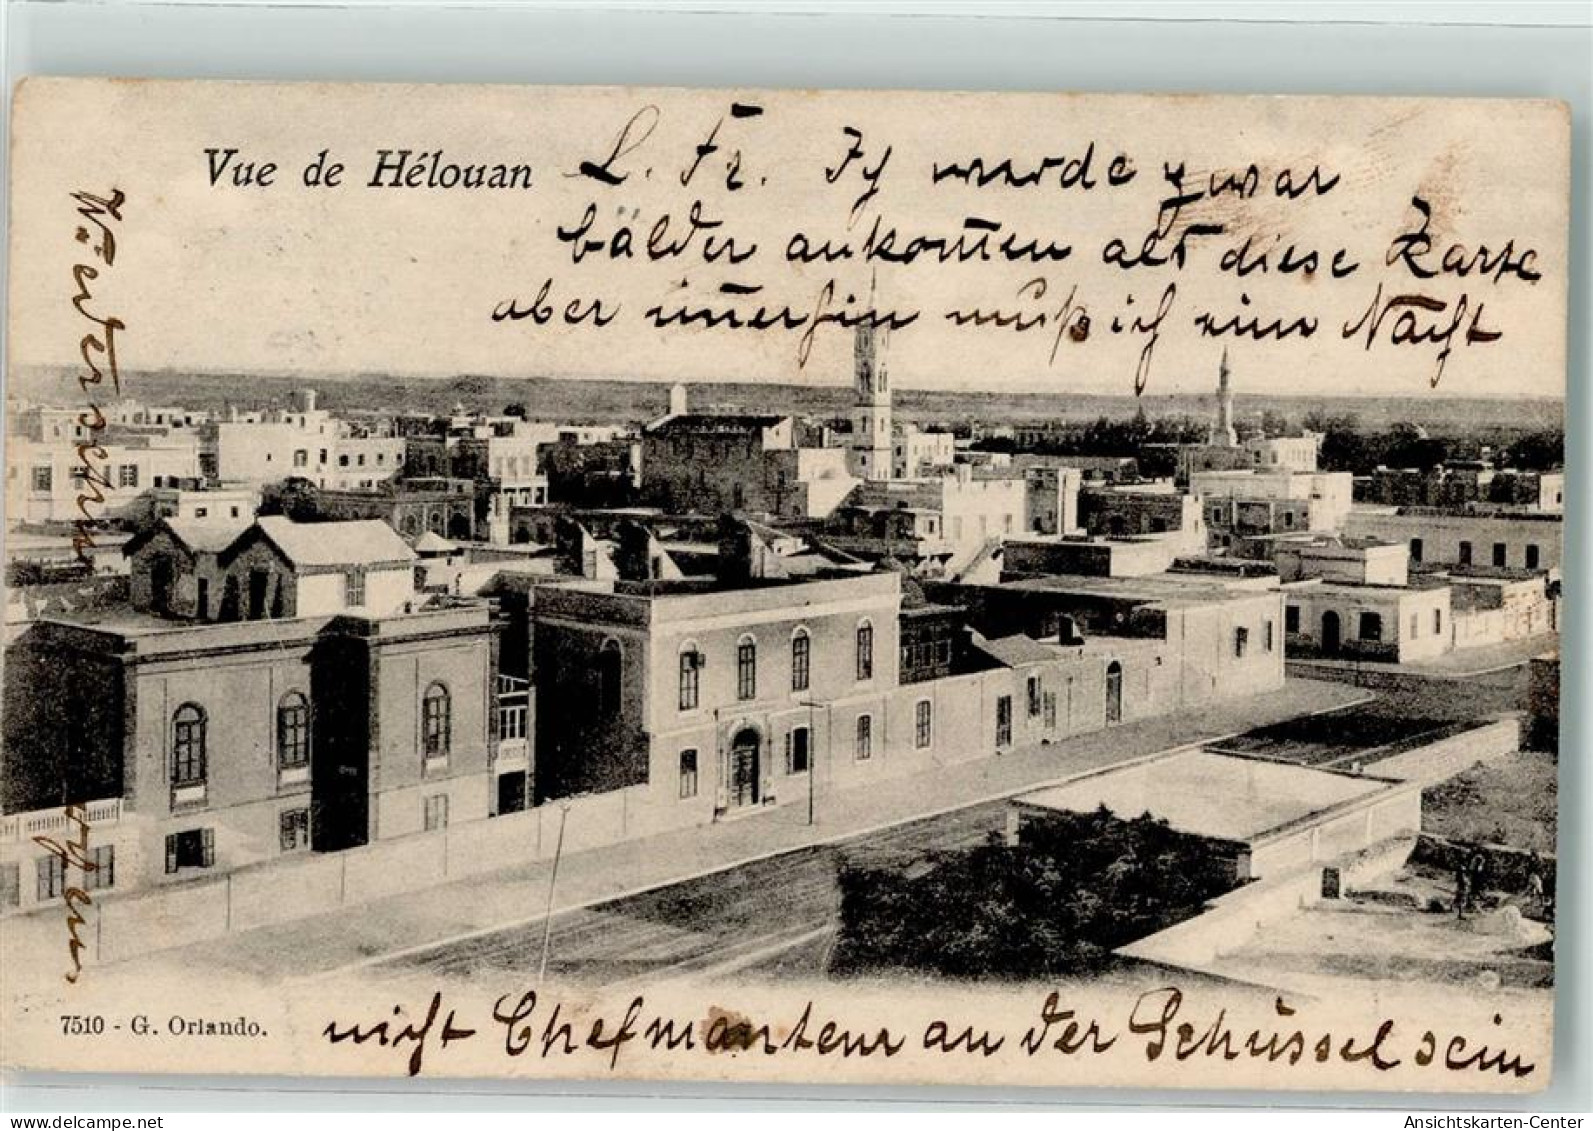 Vue de Hélouan
L. Fr. Ich werde zwar
bälder ankommen als diese Karte
aber immerhin muß ich eine Nacht
nicht Chefmanteur an der Schüssel sein
Wiedersehen
7510 - G. Orlando.
delcampe.net
Ansichtskarten-Center